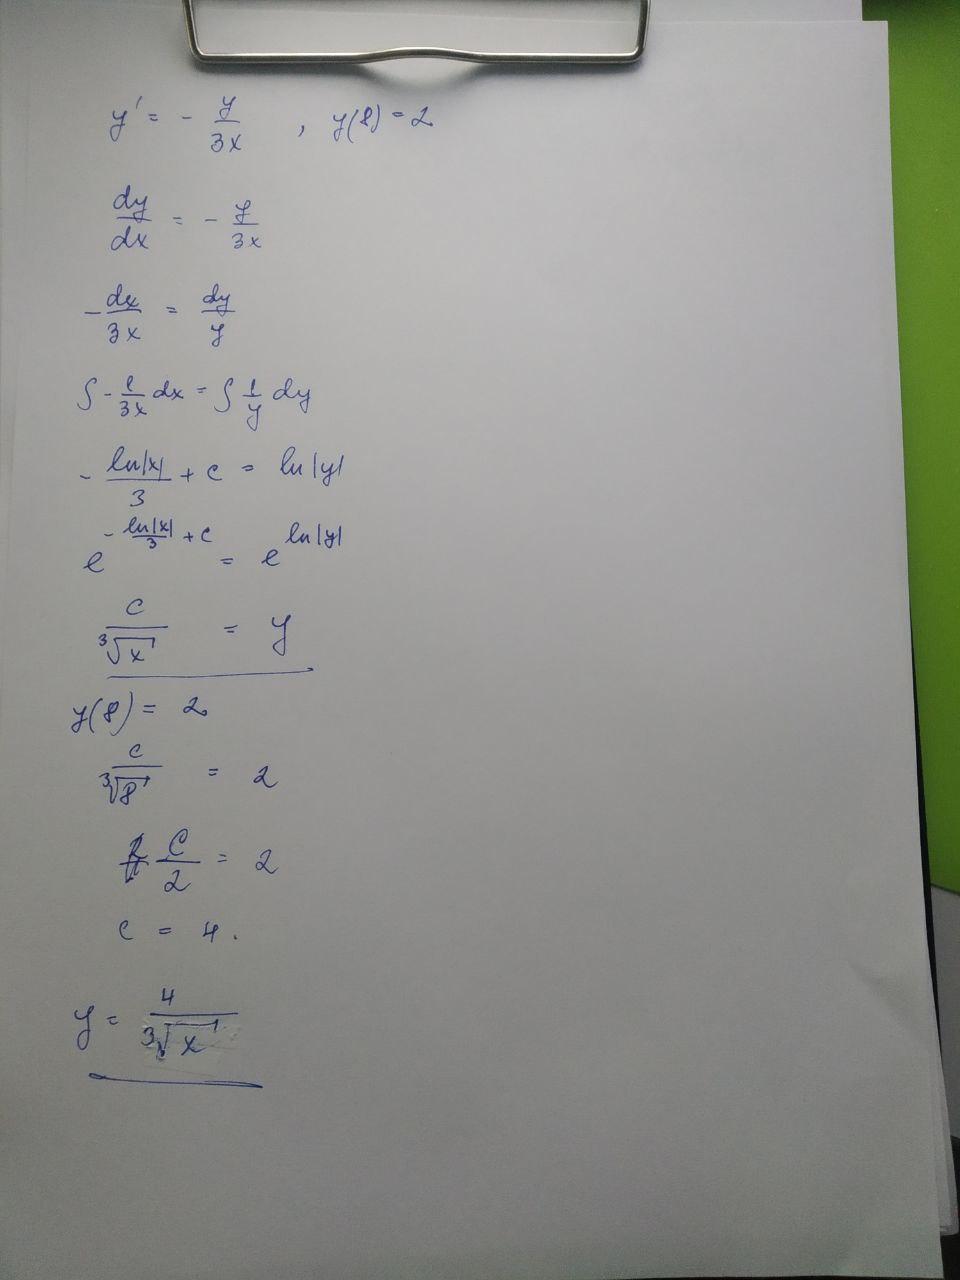 y' = - y/3x , y(8) = 2
dy/dx = - y/3x
- dx/3x = dy/y
∫ - 1/3x dx = ∫ 1/y dy
- ln|x|/3 + c = ln|y|
e^(- ln|x|/3 + c) = e^(ln|y|)
c/∛x = y
y(8) = 2
c/∛8 = 2
C/2 = 2
c = 4.
y = 4/∛x